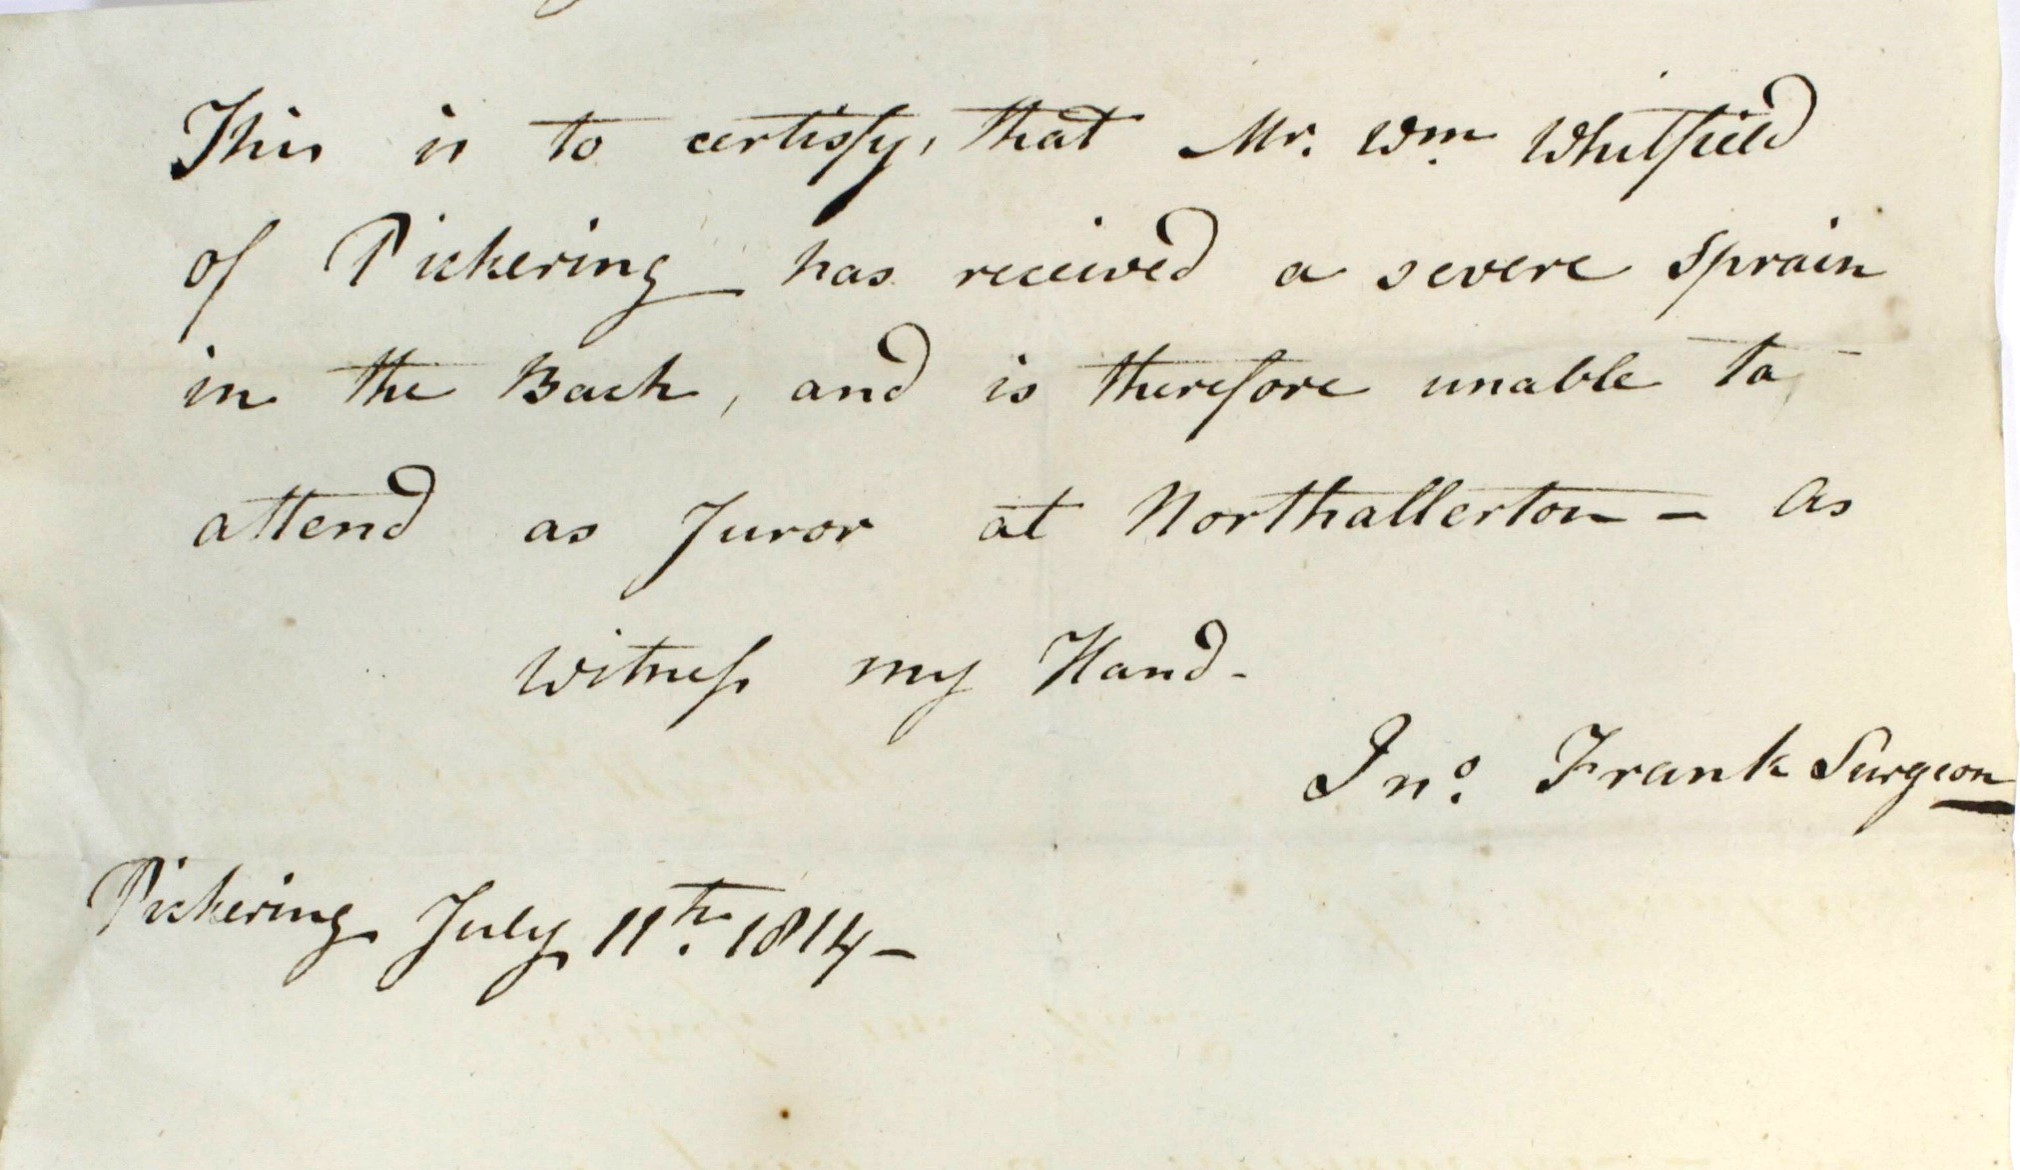 This is to certify, that Mr. Wm. Whitfield
of Pickering has received a severe Sprain
in the Back, and is therefore unable to
attend as Juror at Northallerton – As
Witneſs my Hand –
Jno. Frank Surgeon
Pickering July 11th. 1814 –